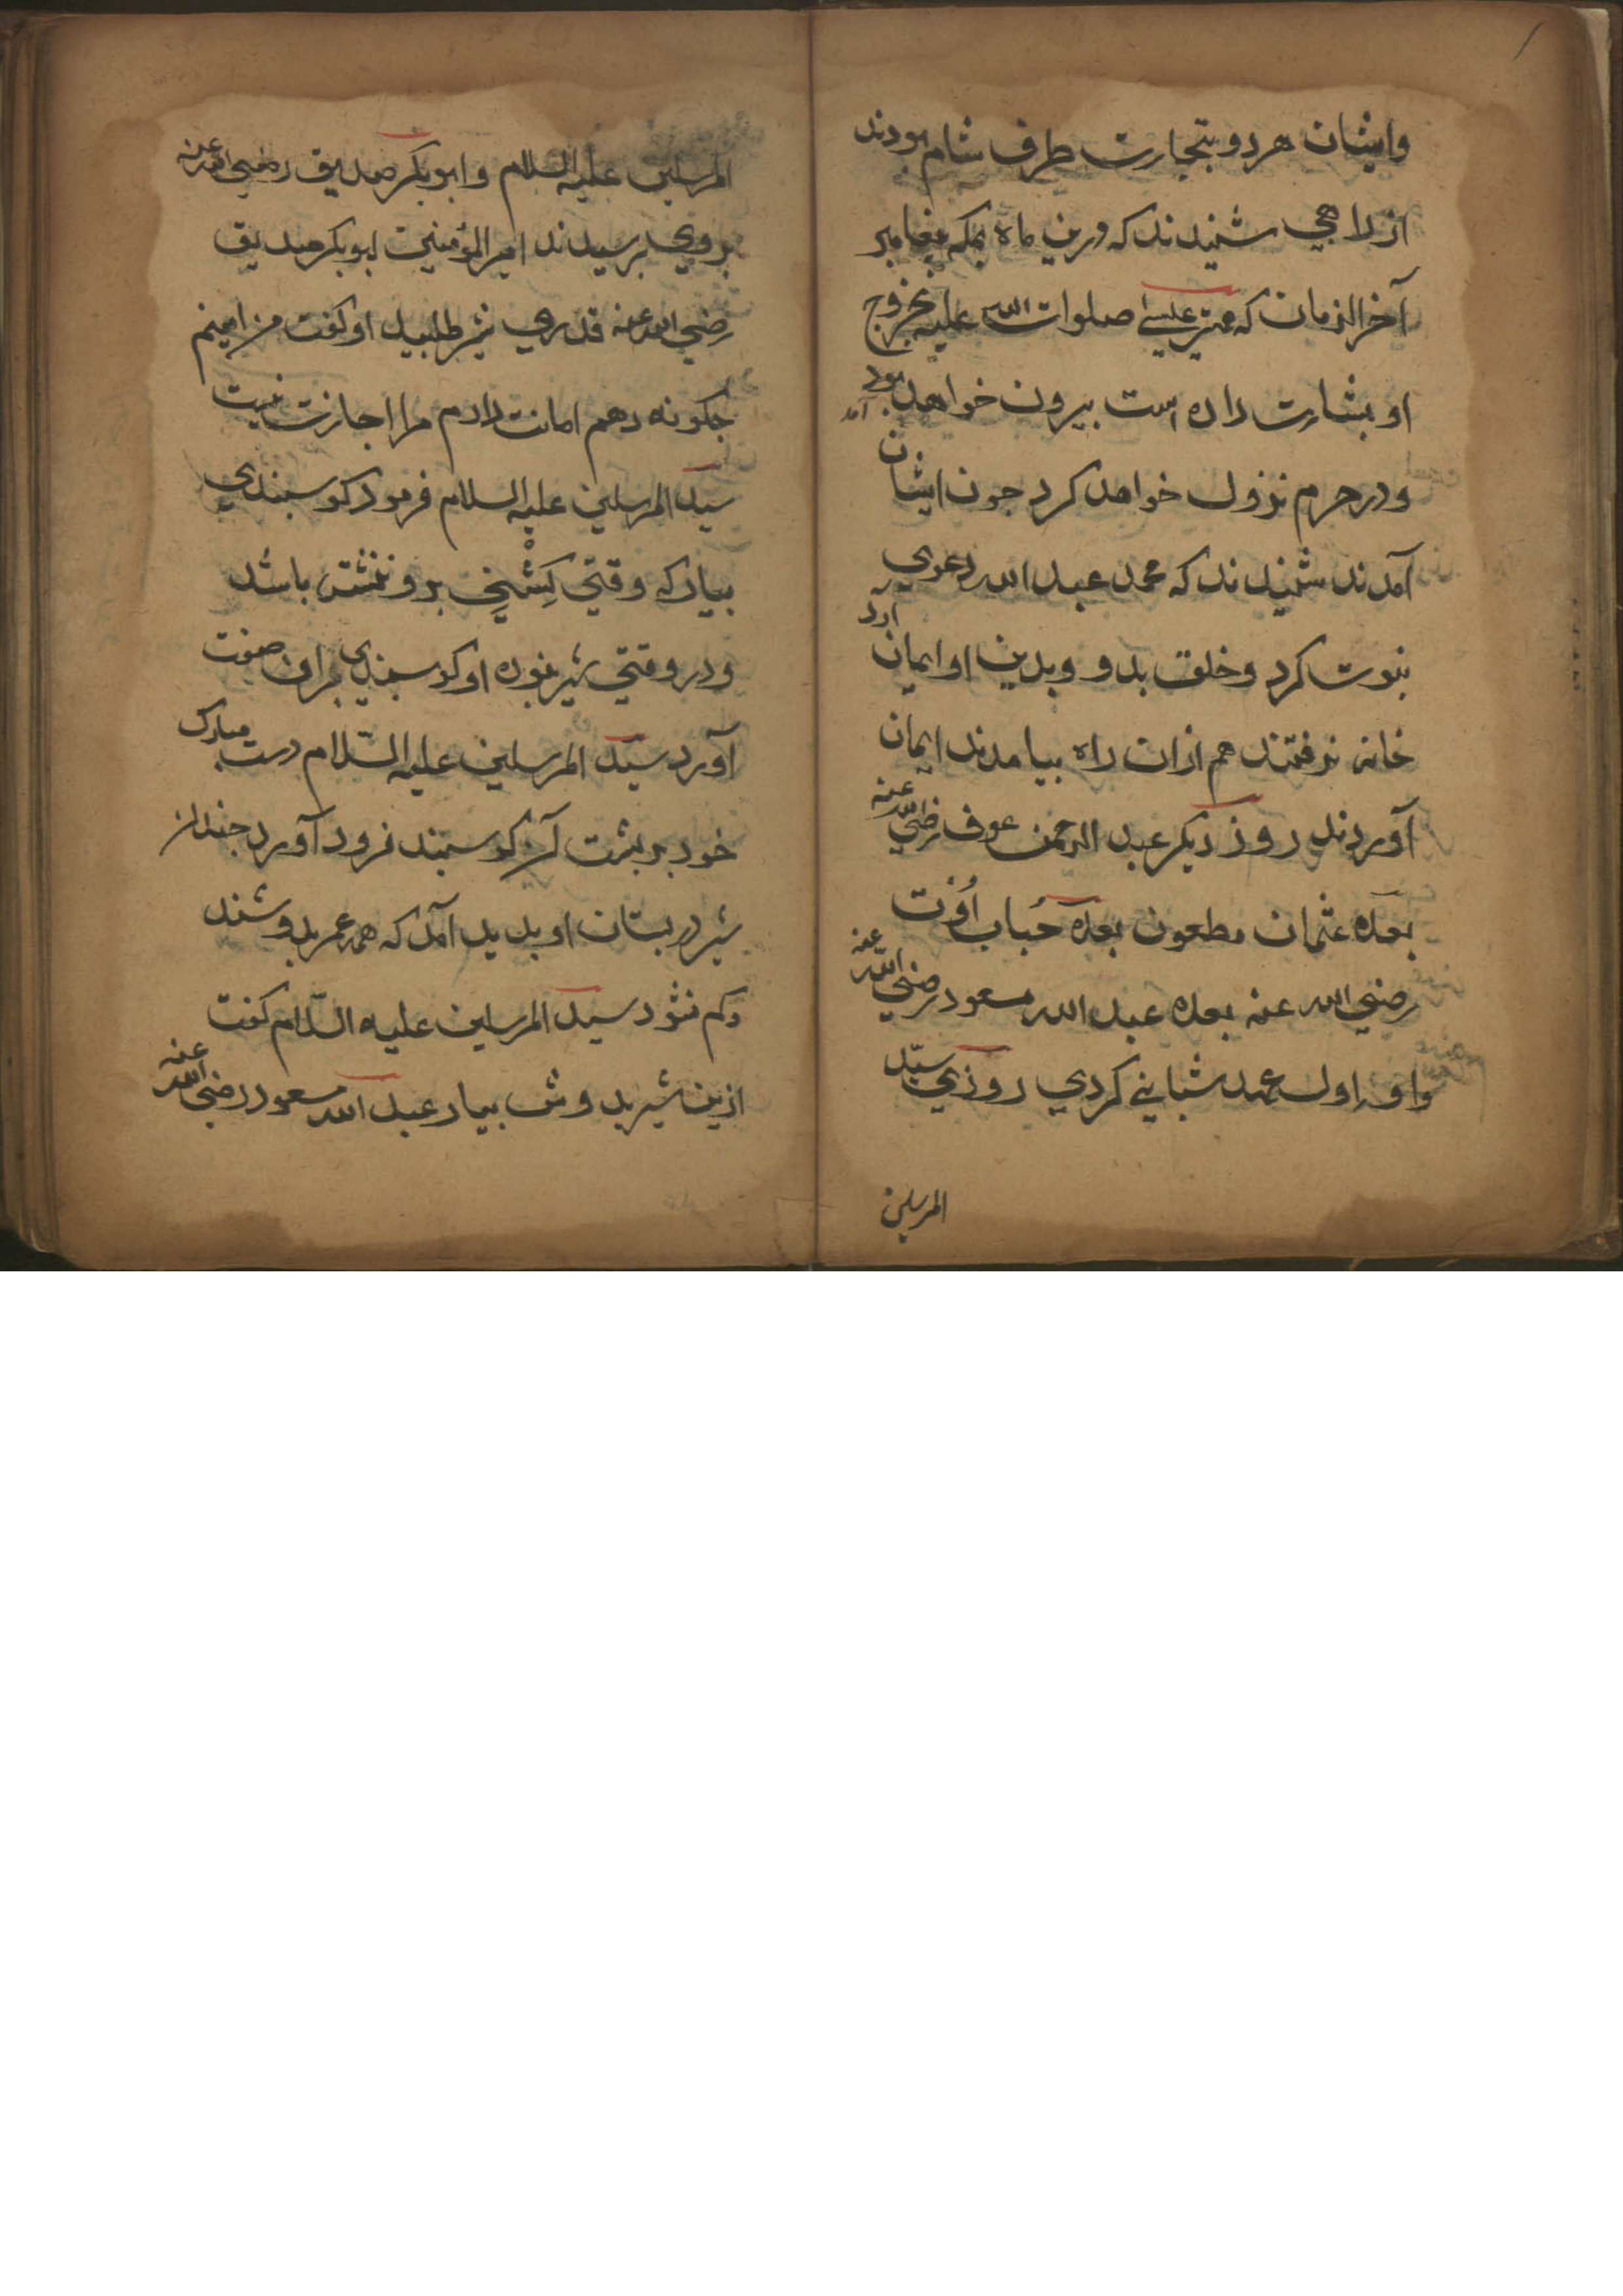 وایشان هر دو بتجارت طرف شام بودند
از راهبی شنیدند که درین ماه بمکه پیغامبر
آخر الزمان که مهتر عیسی صلوات الله علیه بخروج
او بشارت داده است بیرون خواهد آمد
ودر حرم نزول خواهد کرد جون ایشان
آمدند شنیدند که محمد عبد الله دعوی
نبوت کرد وخلق بدو وبدین او ایمان آرد
خانه نرفتند هم ازان راه بیامدند ایمان
آوردند روز دیکر عبد الرحمن عوف رضی الله عنه
بعده عثمان مطعون بعده حُباب اُفرت
رضی الله عنه بعده عبد الله مسعود رضی الله عنه
واو در اول عهد شبانی کردی روزی سیّد
المرسلین
المرسلین علیه السلام وابو بکر صدیق رضی الله عنه
بر وی برسیدند امیر المؤمنین ابو بکر صدیق
رضی الله عنه قدری شیر طلبید او کفت من امینم
جکونه دهم امانت دارم مرا اجازت نیست
سید المرسلین علیه السلام فرمود کوسبندی
بیار که وقتی کَشْنِی برو ننشسته باشد
ودر وقتی شیر نبوده او کوسبندی بران صفت
آورد سید المرسلین علیه السّلام دست مبارک
خود بر بشت آن کوسبند فرود آورد جندان
شیر در بستان او بدید آمد که همه عمر بدوشند
وکم نشود سید المرسلین علیه السّلام کفت
ازین شیر بدوش بیار عبد الله مسعود رضی الله عنه